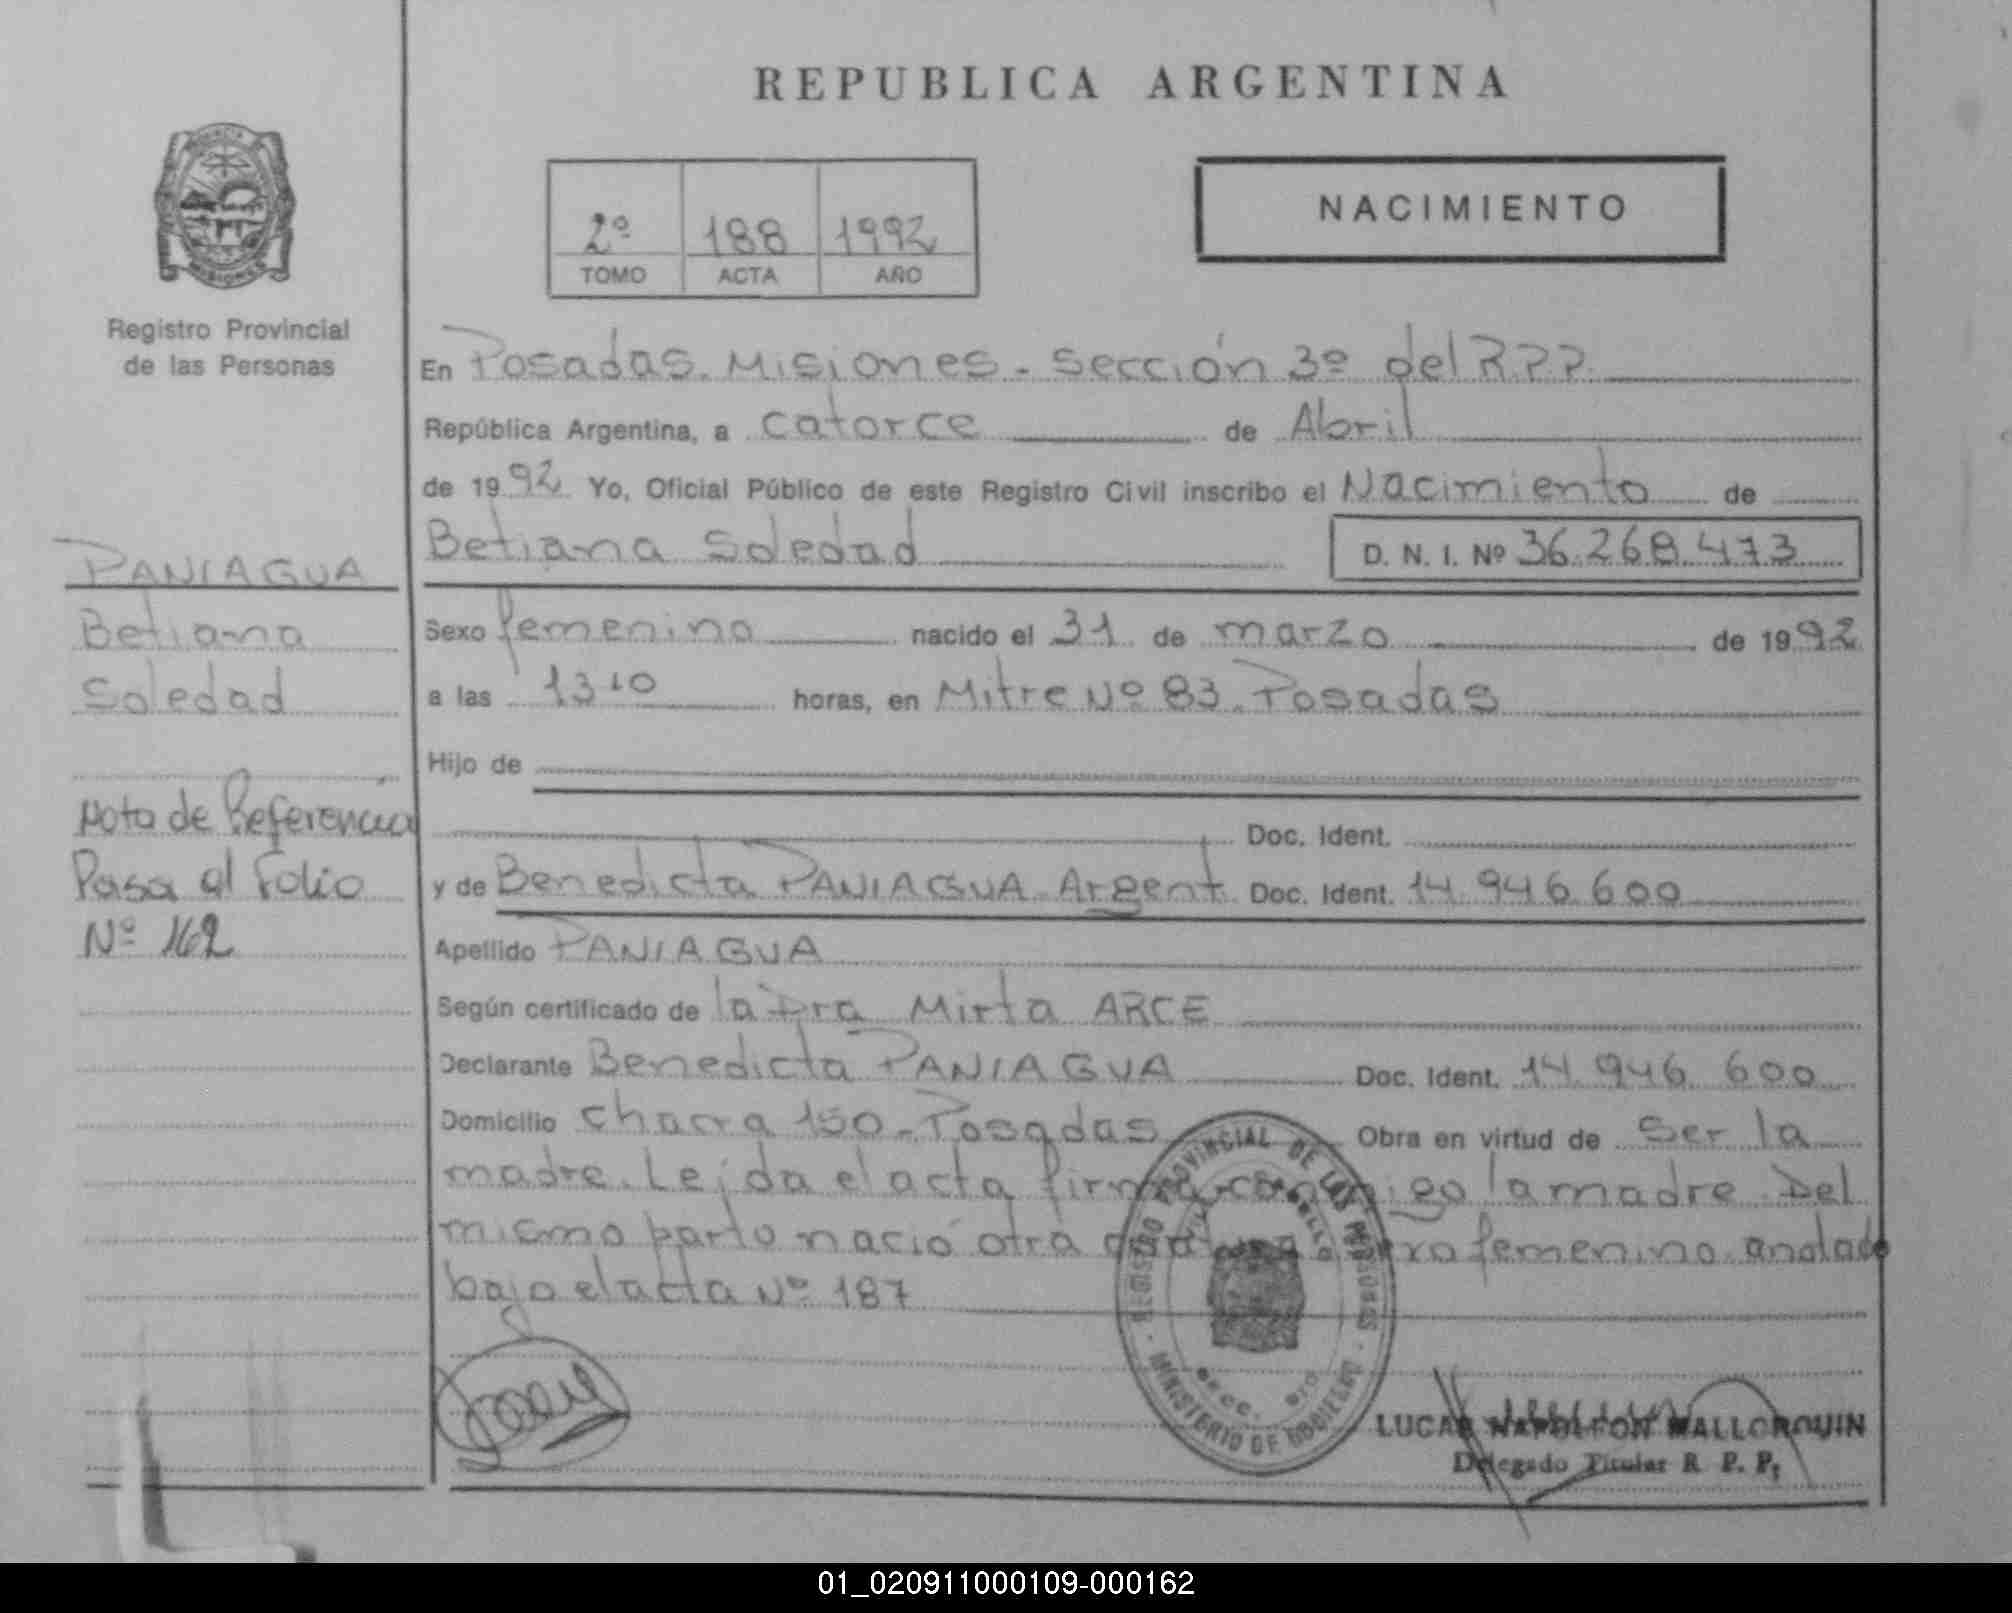 REPUBLICA ARGENTINA
PROVINCIA
MISIONES
Registro Provincial
de las Personas
2º 188 1992
TOMO ACTA AÑO
NACIMIENTO
En Posadas. Misiones - Sección 3º del R P P
República Argentina, a catorce de Abril
de 1992 Yo, Oficial Público de este Registro Civil inscribo el Nacimiento de
Betiana Soledad D. N. I. Nº 36.268.473
PANIAGUA
Betiana
Soledad
Nota de Referencia
Pasa al Folio
Nº 162
Sexo femenino nacido el 31 de marzo de 1992
a las 13 10 horas, en Mitre Nº 83. Posadas
Hijo de
Doc. Ident.
y de Benedicta PANIAGUA Argent. Doc. Ident. 14.946.600
Apellido PANIAGUA
Según certificado de la Dra Mirta ARCE
Declarante Benedicta PANIAGUA Doc. Ident. 14.946.600
Domicilio Chacra 150 - Posadas Obra en virtud de Ser la
madre. Leida el acta firma conmigo la madre. Del
mismo parto nació otra sexo femenino anotado
bajo el acta Nº 187
REGISTRO PROVINCIAL DE LAS PERSONAS
MINISTERIO DE GOBIERNO
LUCAS NAPOLEON MALLORQUIN
Delegado Titular R. P. P.
01_020911000109-000162